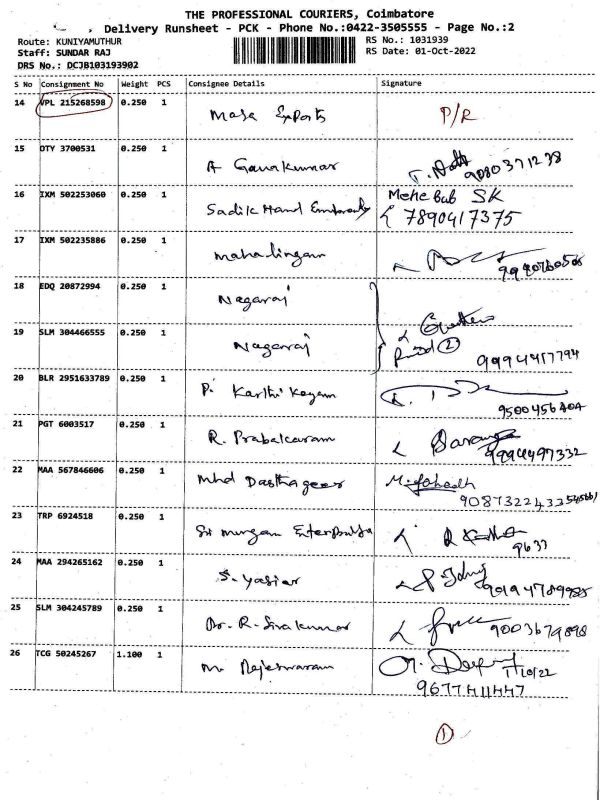 THE PROFESSIONAL COURIERS, Coimbatore
Delivery Runsheet - PCK - Phone No.:0422-3505555 - Page No.:2
Route: KUNIYAMUTHUR
RS No.: 1031939
Staff: SUNDAR RAJ
RS Date: 01-Oct-2022
DRS No.: DCJB103193902
S No Consignment No Weight PCS Consignee Details Signature
14 VPL 215268598 0.250 1 Masa Exports P/R
15 DTY 3700531 0.250 1 A Ganakumar 9080371238
16 IXM 502253060 0.250 1 Sadik Hand Embroidy Mehebub SK
7890417375
17 IXM 502235886 0.250 1 Mahalingam
18 EDQ 20872994 0.250 1 Nagaraj
19 SLM 304466555 0.250 1 Nagaraj 2
9994417794
20 BLR 2951633789 0.250 1 P. Karthi Keyan
9500456404
21 PGT 6003517 0.250 1 R. Prabakaram
9994497332
22 MAA 567846606 0.250 1 Mhd Dasthageer
23 TRP 6924518 0.250 1 Sri Murugan
9633
24 MAA 294265162 0.250 1 S. Yasiar
25 SLM 304245789 0.250 1 Dr. R. Sivakumar 9003679898
26 TCG 50245267 1.100 1 M. Rajeswaram
1/10/22
9677411447
1